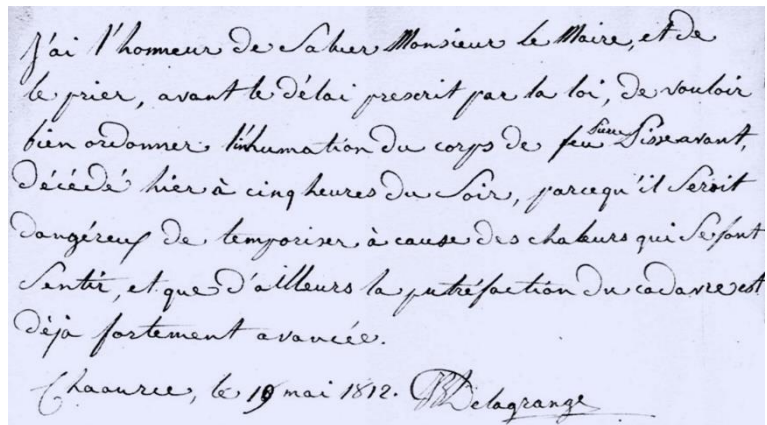 J'ai l'honneur de Saluer Monsieur le Maire, et de
le prier, avant le délai prescrit par la loi, de vouloir
bien ordonner l'inhumation du corps de feu Sieur Pissavant,
décédé hier à cinq heures du Soir, parcequ'il Seroit
dangéreux de temporiser à cause des chaleurs qui Se font
Sentir, et que d'ailleurs la putréfaction du cadavre est
déja fortement avancée.
Chaource, le 19 mai 1812. Delagrange